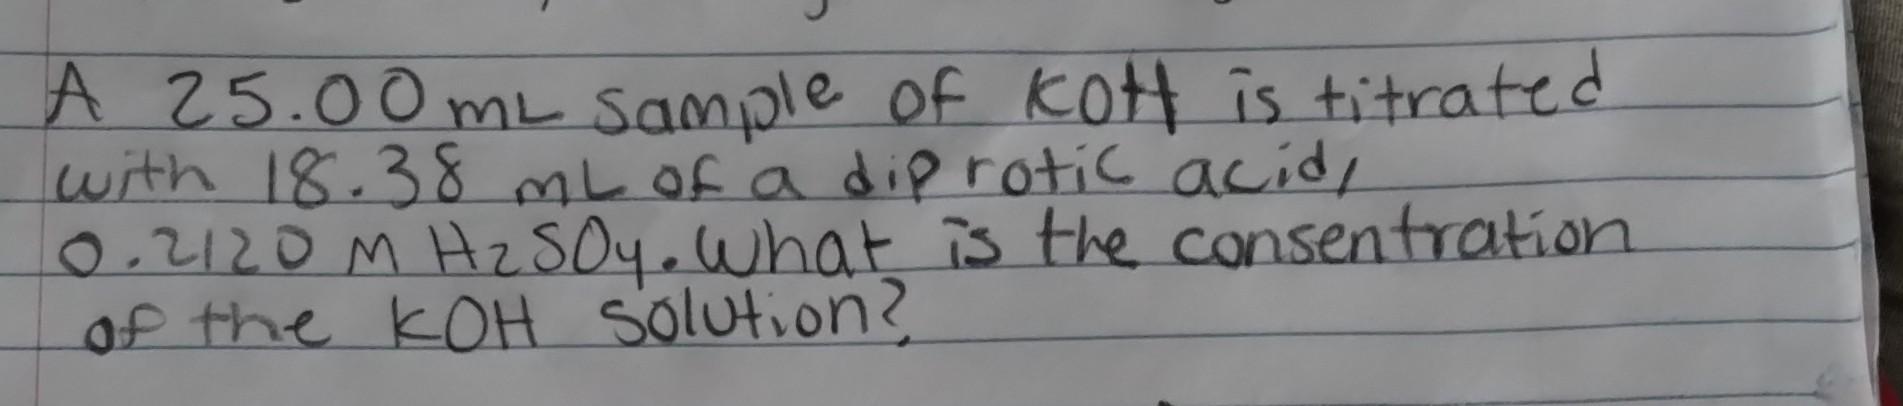 A 25.00 mL sample of KOH is titrated
with 18.38 mL of a diprotic acid,
0.2120 M H2SO4. What is the consentration
of the KOH solution?